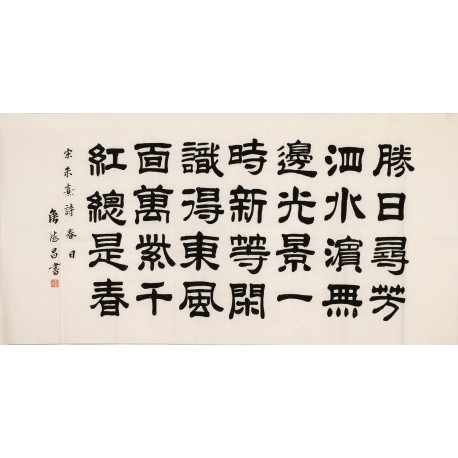 勝日尋芳
泗水濱無
邊光景一
時新等閑
識得東風
面萬紫千
紅總是春
宋朱熹詩春日
昌書